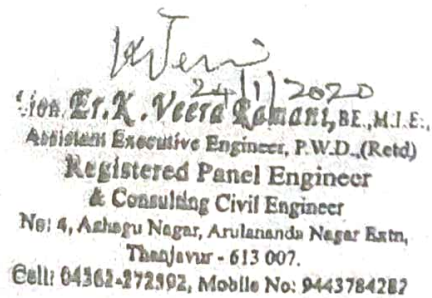 24/1/2020
Lion. Er. K. Veera Ramani, BE., M.I.E.,
Assistant Executive Engineer, P.W.D., (Retd)
Registered Panel Engineer
& Consulting Civil Engineer
No: 4, Azhagu Nagar, Arulananda Nagar Extn,
Thanjavur - 613 007.
Cell: 04362-272392, Mobile No: 9443784282